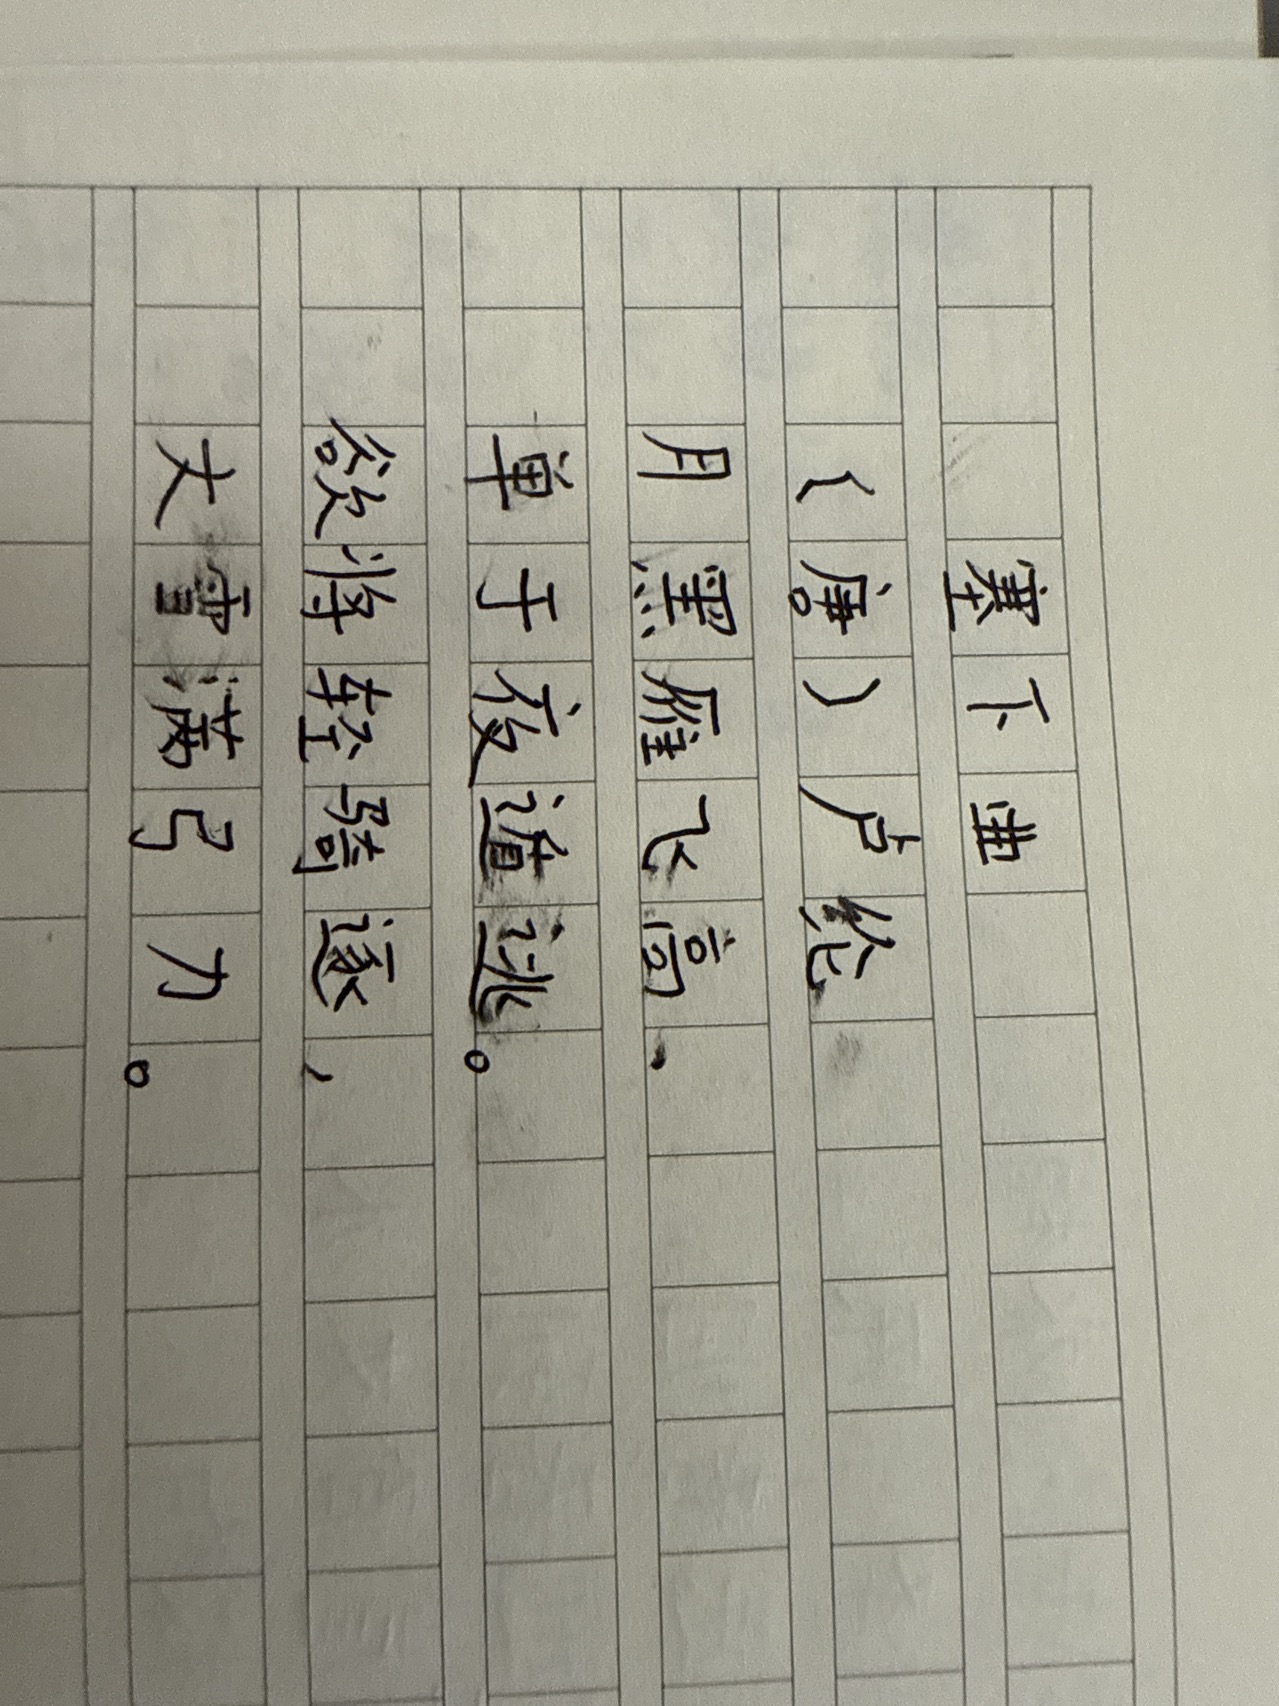 塞下曲
（唐）卢纶
月黑雁飞高，
单于夜遁逃。
欲将轻骑逐，
大雪满弓刀。